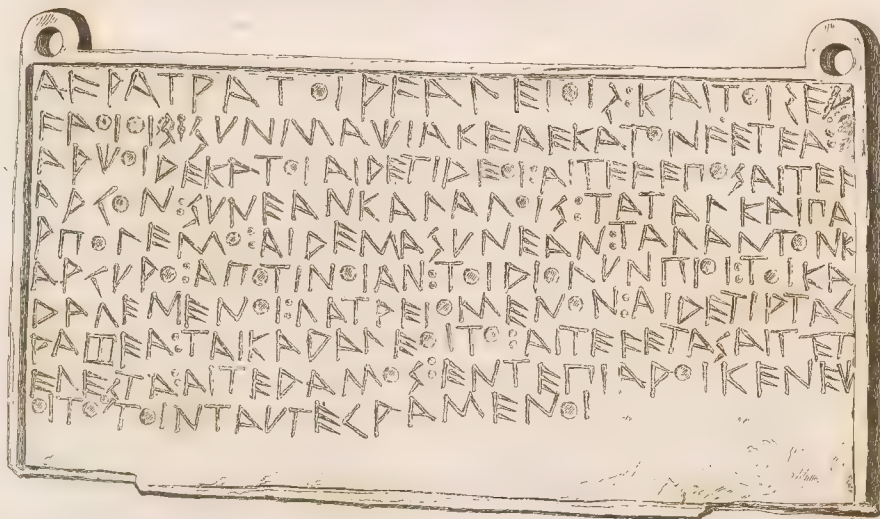 ΑϜΡΑΤΡΑΤΟΙΡϜΑΛΕΙΟΙΣ:ΚΑΙΤΟΙΣΕΥ
ϜΑΟΙΟΙΣ:ΣΥΝΜΑΨΙΑΚΕΑΕΚΑΤΟΝϜΕΤΕΑ:
ΑΡΨΟΙΔΕΚΑΤΟΙΑΙΔΕΤΙΔΕΟΙ:ΑΙΤΕϜΕΠΟΣΑΙΤΕϜ
ΑΡΓΟΝ:ΣΥΝΕΑΝΚΑΛΑΛΟΙΣ:ΤΑΤΑΛΚΑΙΠΑ
ΡΠΟΛΕΜΟ:ΑΙΔΕΜΑΣΥΝΕΑΝ:ΤΑΛΑΝΤΟΝΚ
ΑΡΓΥΡΟ:ΑΠΟΤΙΝΟΙΑΝ:ΤΟΙΔΙΟΛΥΝΠΙΟΙ:ΤΟΙΚΑ
ΔΑΛΕΜΕΝΟΙ:ΛΑΤΡΕΙΟΜΕΝΟΝ:ΑΙΔΕΤΙΡΤΑΓ
ΡΑΦΕΑ:ΤΑΙΚΑΔΑΛΕΟΙΤΟ:ΑΙΤΕϜΕΤΑΣΑΙΤΕΤ
ΕΛΕΣΤΑ:ΑΙΤΕΔΑΜΟΣ:ΕΝΤΕΠΙΑΡΟΙΚΕΝΕΨ
ΟΙΤΟΤΟΙΝΤΑΥΤΕΓΡΑΜΕΝΟΙ